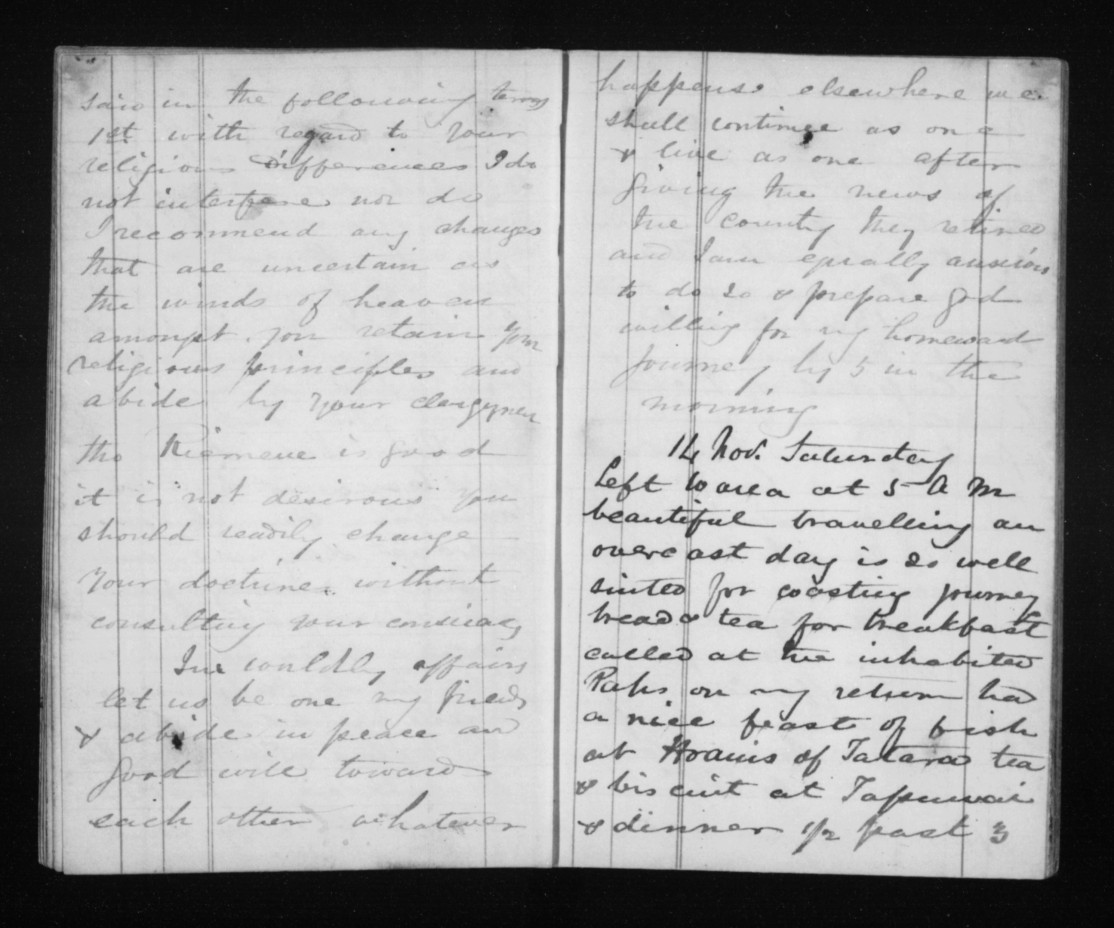 said in the following terms
1st with regard to your
religious differences I do
not interfere nor do
I recommend any changes
that are uncertain as
the winds of heaven
amongst you retain your
religious principles and
abide by your clergymen
tho is good
it is not desirous you
should readily change
your doctrines without
consulting your
In worldly affairs
let us be one my friends
& abide in peace and
good will towards
each other whatever
happens elsewhere we
shall continue as one
& live as one after
giving the news of
the country they retired
and I am equally anxious
to do so & prepare god
willing for my homeward
journey by 5 in the
morning
14 Nov. Saturday
Left at 5 A M
beautiful travelling an
overcast day is so well
suited for coasting journey
bread & tea for breakfast
called at the inhabited
Pahs on my return had
a nice feast of fish
at of Tatara tea
& biscuit at Tapuwai
& dinner 1/2 past 3